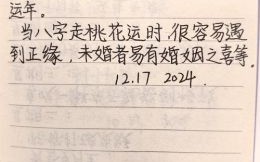 运年。
当八字走桃花运时,很容易遇
到正缘,未婚者易有婚姻之喜等.
12.17 2024.